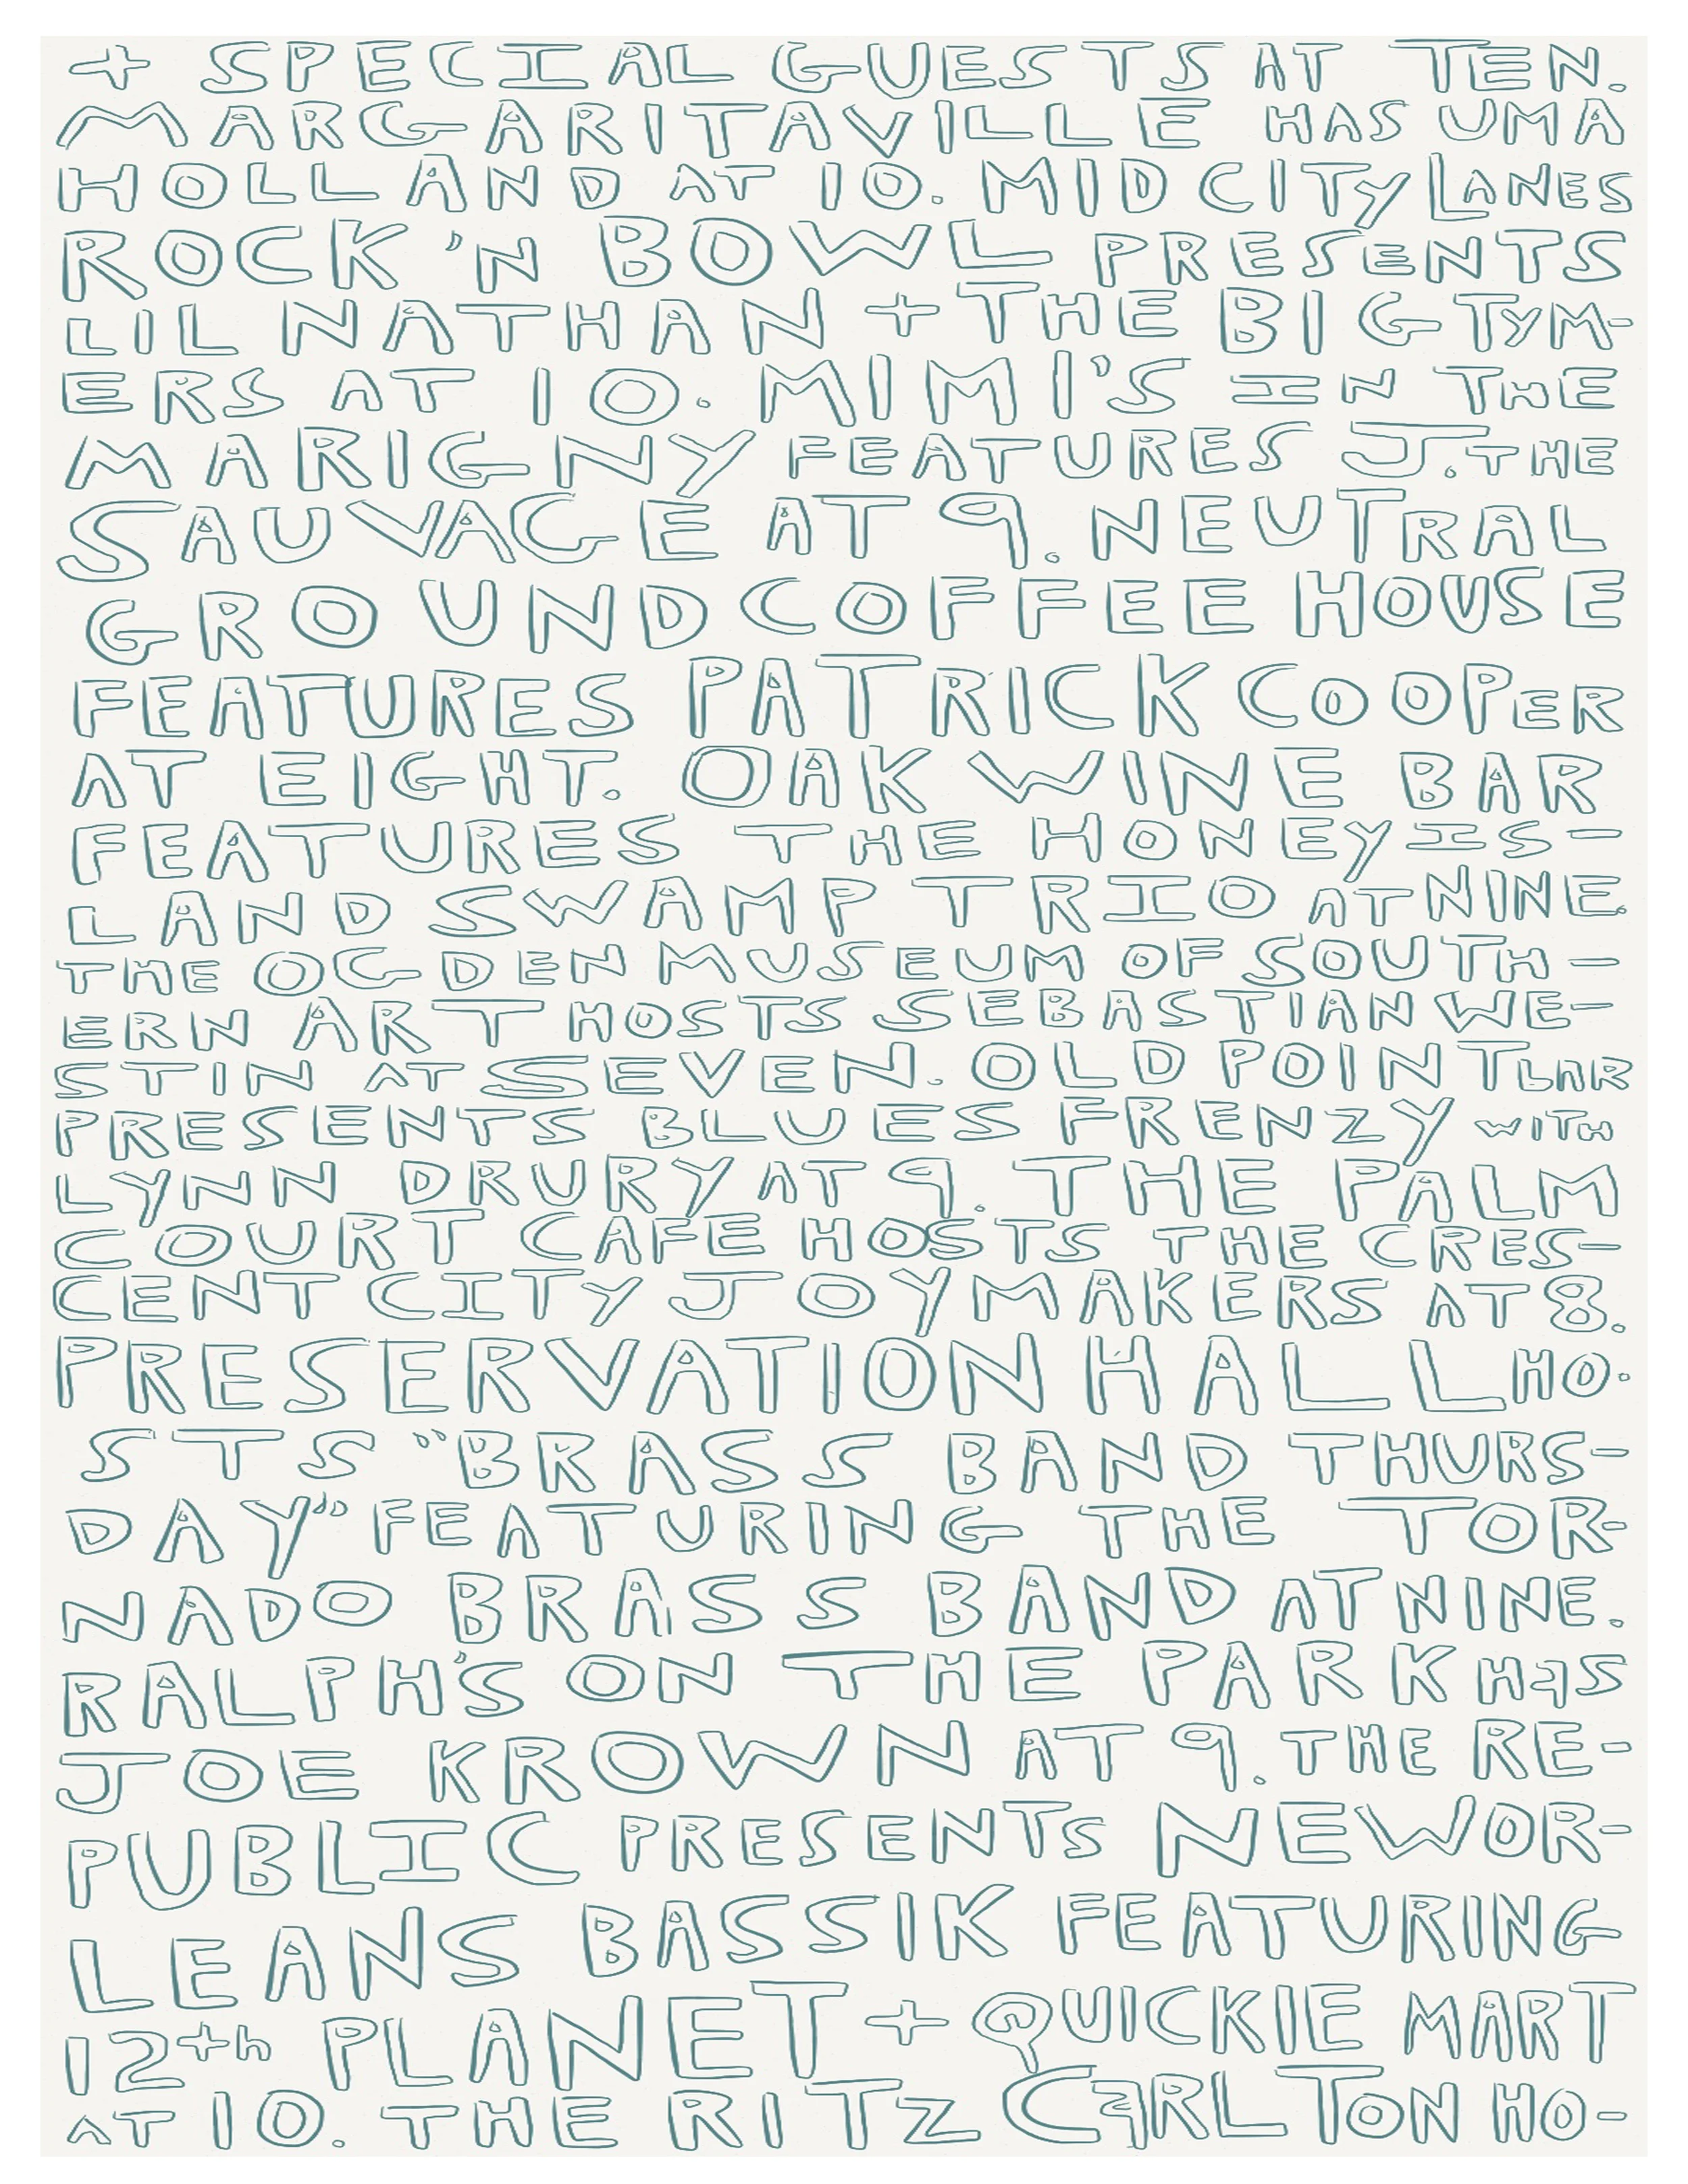 + SPECIAL GUESTS AT TEN.
MARGARITAVILLE HAS UMA
HOLLAND AT 10. MID CITY LANES
ROCK 'N BOWL PRESENTS
LIL NATHAN + THE BIG TYM-
ERS AT 10. MIMI'S IN THE
MARIGNY FEATURES J. THE
SAUVAGE AT 9. NEUTRAL
GROUND COFFEE HOUSE
FEATURES PATRICK COOPER
AT EIGHT. OAK WINE BAR
FEATURES THE HONEY IS-
LAND SWAMP TRIO AT NINE.
THE OGDEN MUSEUM OF SOUTH-
ERN ART HOSTS SEBASTIAN WE-
STIN AT SEVEN. OLD POINT BAR
PRESENTS BLUES FRENZY WITH
LYNN DRURY AT 9. THE PALM
COURT CAFE HOSTS THE CRES-
CENT CITY JOYMAKERS AT 8.
PRESERVATION HALL HO-
STS "BRASS BAND THURS-
DAY" FEATURING THE TOR-
NADO BRASS BAND AT NINE.
RALPH'S ON THE PARK HAS
JOE KROWN AT 9. THE RE-
PUBLIC PRESENTS NEW OR-
LEANS BASSIK FEATURING
12th PLANET + QUICKIE MART
AT 10. THE RITZ CARLTON HO-